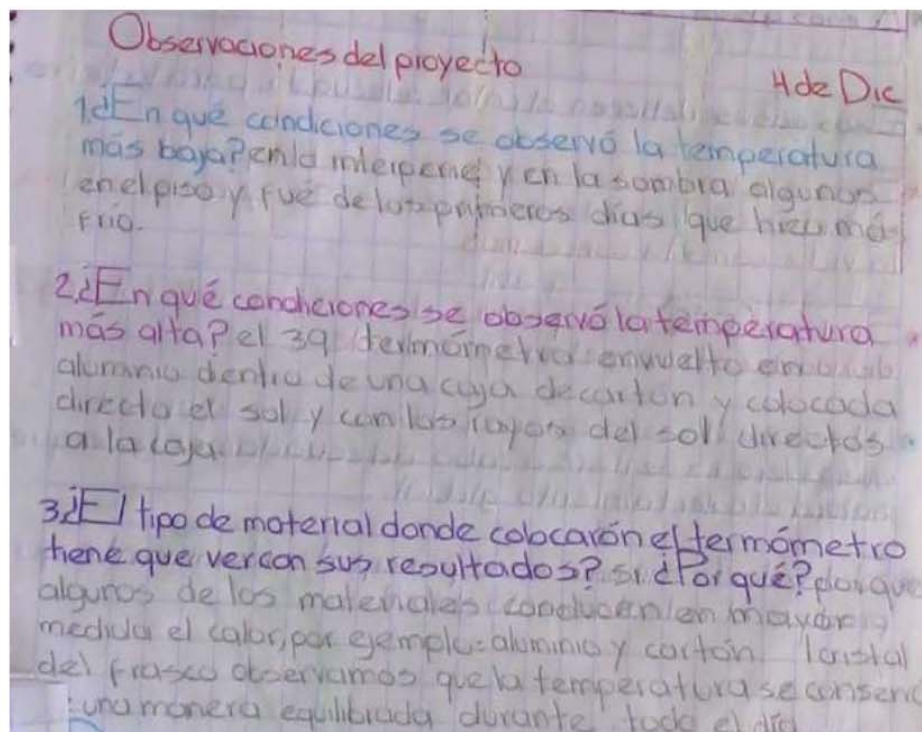 Observaciones del proyecto
4 de Dic
1¿En qué condiciones se observó la temperatura
más baja? en la interperie y en la sombra algunos
en el piso y fué de los primeros días que hizo más
frio.
2.¿En qué condiciones se observó la temperatura
más alta? el 39 termómetro envuelto en
aluminio dentro de una caja de cartón y colocada
directo el sol y con los rayos del sol directos
a la caja.
3.¿El tipo de material donde colocarón el termómetro
tiene que ver con sus resultados? si ¿Por qué? porque
algunos de los materiales conducen en mayor
medida el calor, por ejemplo: aluminio y cartón
del frasco observamos que la temperatura se
una manera equilibrada durante todo el día